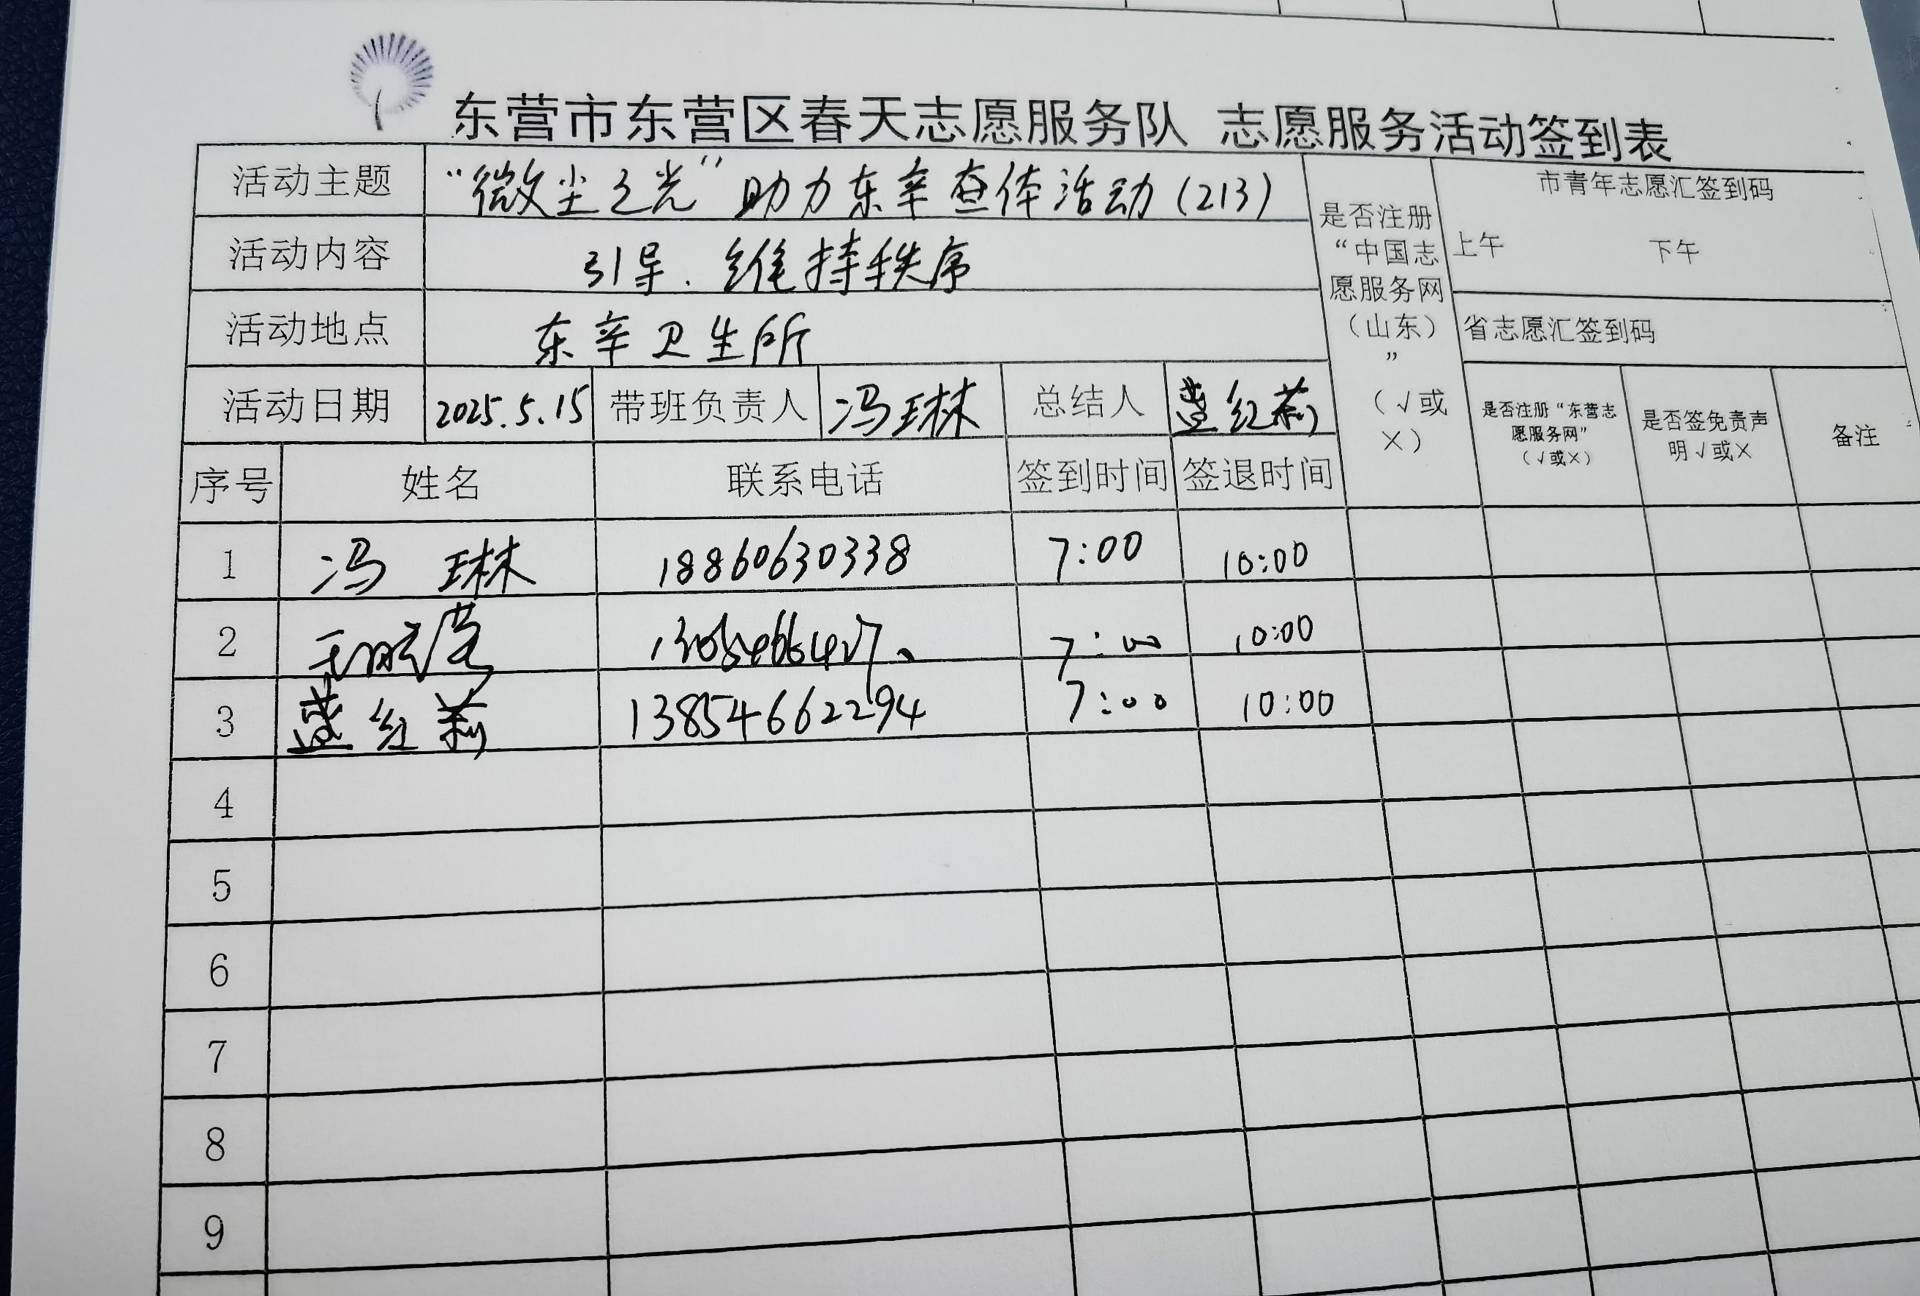 东营市东营区春天志愿服务队 志愿服务活动签到表
活动主题 “微尘之光”助力东辛查体活动(213)
活动内容 引导、维持秩序
活动地点 东辛卫生所
活动日期 2025.5.15 带班负责人 冯琳 总结人 蓝红莉
是否注册“中国志愿服务网（山东）”（√或×）
市青年志愿汇签到码
上午 下午
省志愿汇签到码
是否注册“东营志愿服务网”（√或×） 是否签免责声明√或× 备注
序号 姓名 联系电话 签到时间 签退时间
1 冯琳 18860630338 7:00 10:00
2 7:00 10:00
3 蓝红莉 13854662294 7:00 10:00
4
5
6
7
8
9